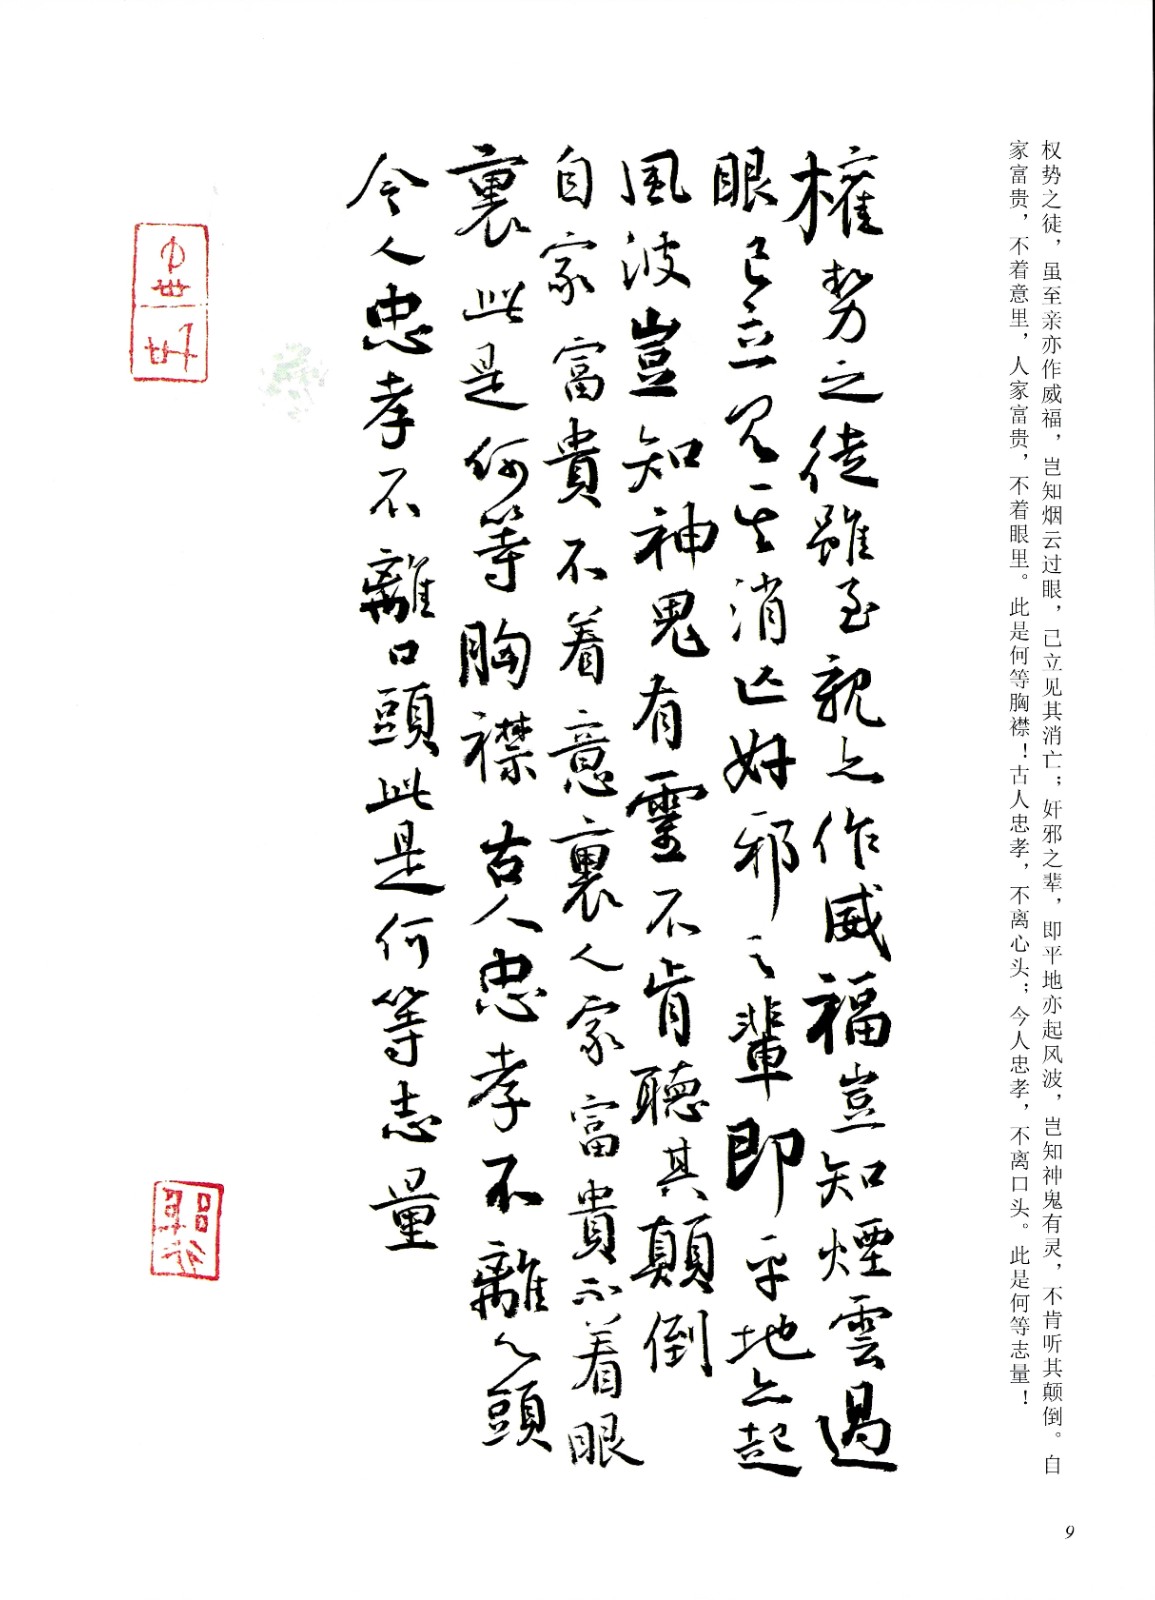 权势之徒，虽至亲亦作威福，岂知烟云过眼，己立见其消亡；奸邪之辈，即平地亦起风波，岂知神鬼有灵，不肯听其颠倒。自
家富贵，不着意里，人家富贵，不着眼里。此是何等胸襟！古人忠孝，不离心头；今人忠孝，不离口头。此是何等志量！
權勢之徒雖至親亦作威福豈知煙雲過
眼已立見其消亡奸邪之輩即平地亦起
風波豈知神鬼有靈不肯聽其顛倒
自家富貴不着意裏人家富貴不着眼
裏此是何等胸襟古人忠孝不離心頭
今人忠孝不離口頭此是何等志量
9